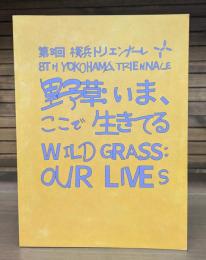 第8回 横浜トリエンナーレ
8TH YOKOHAMA TRIENNALE
野草:いま、
ここで生きてる
WILD GRASS:
OUR LIVES